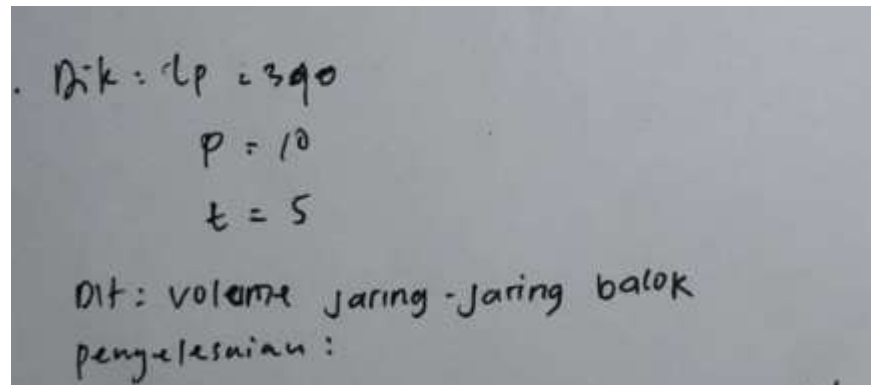 . Dik : Lp = 390
p = 10
t = 5
Dit : volume jaring-jaring balok
penyelesaian :